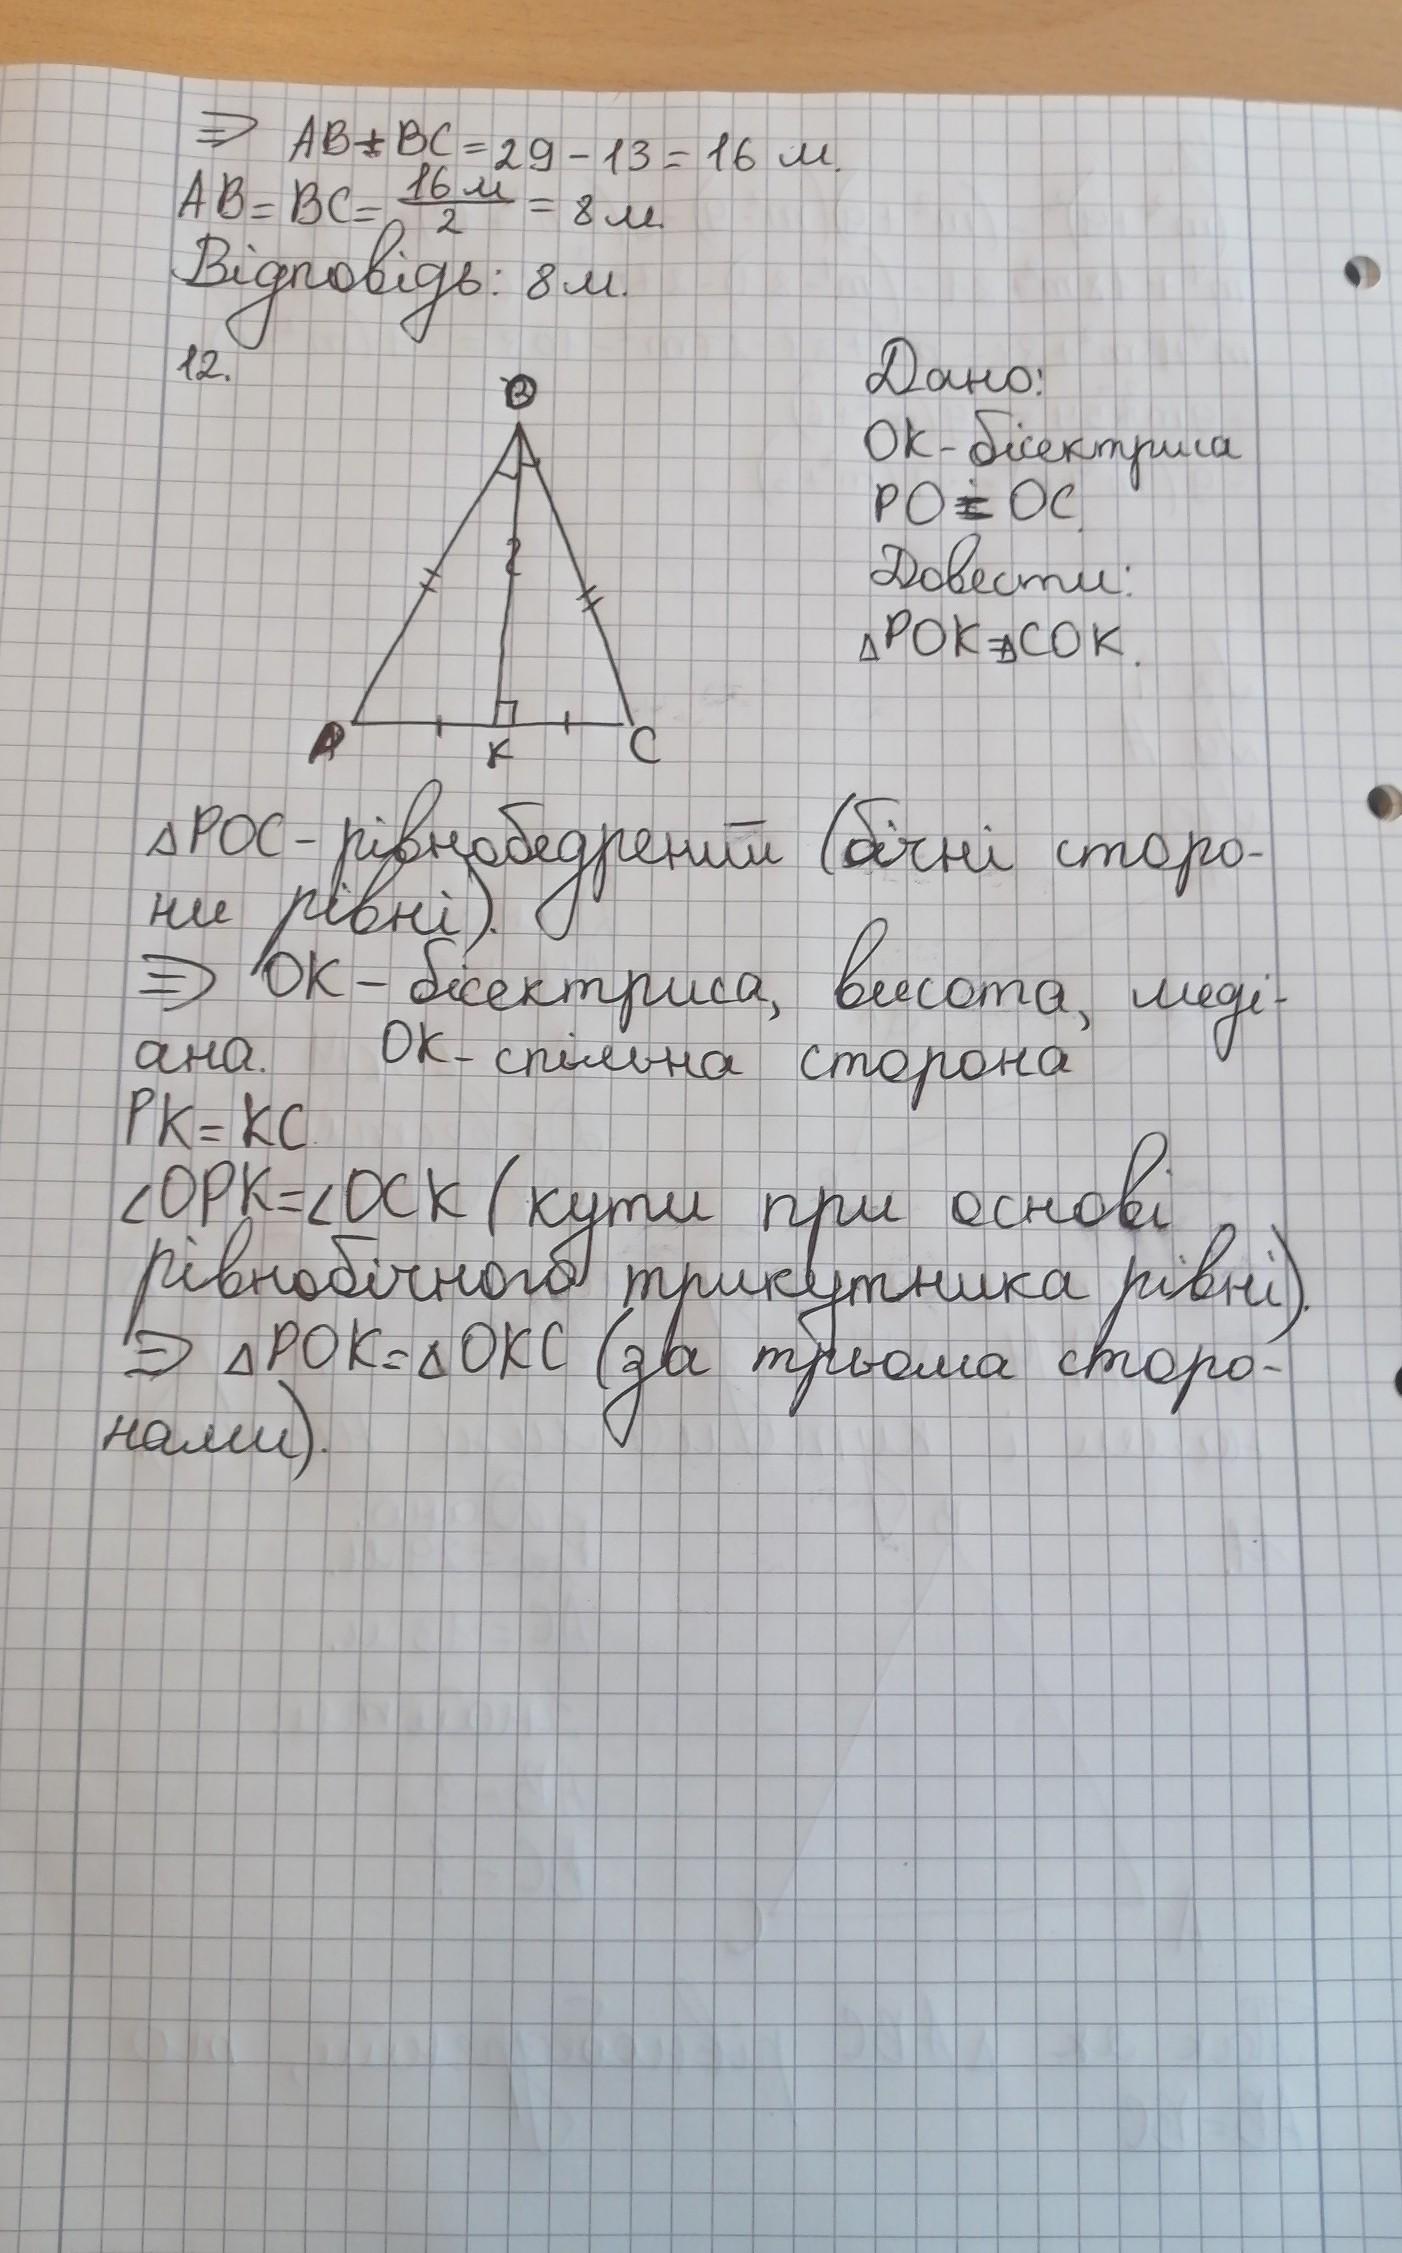 ⇒ AB+BC=29-13=16 м.
AB=BC=16м/2=8м.
Відповідь: 8м.
12.
В
А К С
Дано:
ОК-бісектриса
РО і ОС.
Довести:
△РОК=△СОК.
△РОС-рівнобедрений (бічні сторо-
ни рівні).
⇒ ОК-бісектриса, висота, меді-
ана. ОК-спільна сторона
РК=КС.
∠ОРК=∠ОСК (кути при основі
рівнобічного трикутника рівні).
⇒ △РОК=△ОКС (за трьома сторо-
нами).